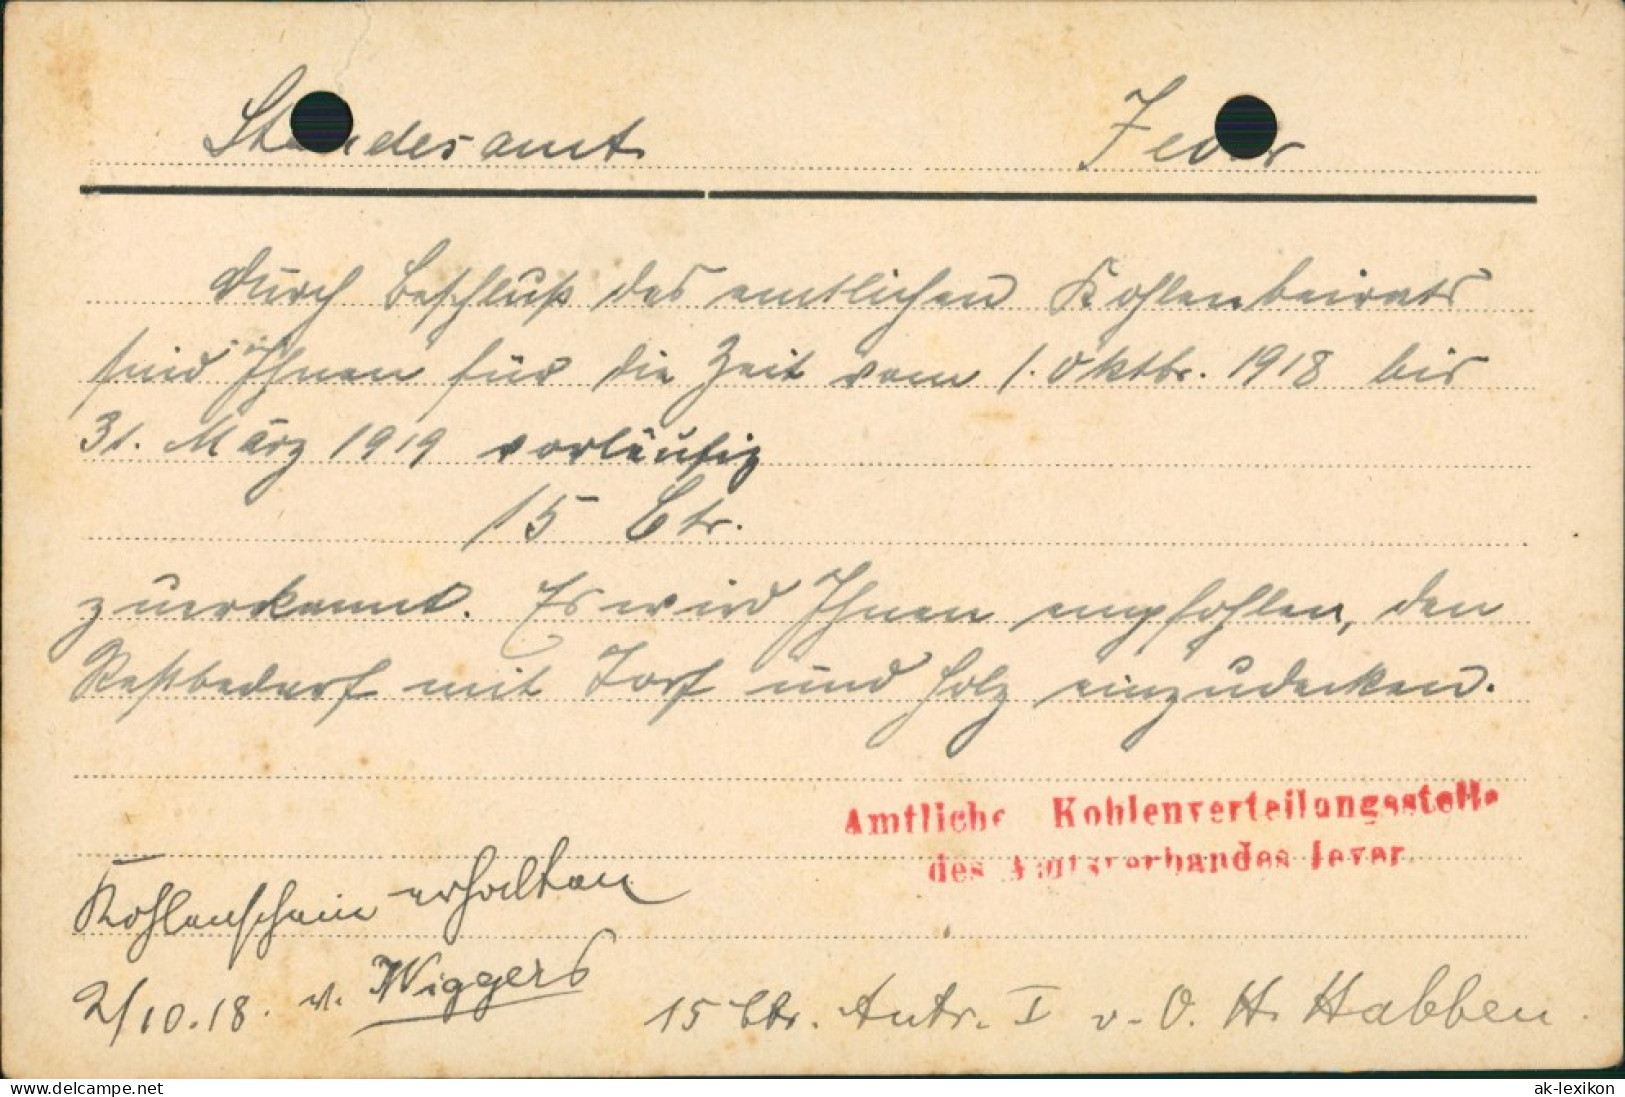 Standesamt Jever
Durch Beschluß des amtlichen Kohlenbeirats
sind Ihnen für die Zeit vom 1. Oktbr. 1918 bis
31. März 1919 vorläufig
15 Ctr.
zuerkannt. Es wird Ihnen empfohlen, den
Restbedarf mit Torf und Holz einzudecken.
Amtliche Kohlenverteilungsstelle
des Amtsverbandes Jever
Kohlenschein erhalten
2/10.18. v. Wiggers
15 Ctr. Antr. I v. O. H. Habben
www.delcampe.net
ak-lexikon